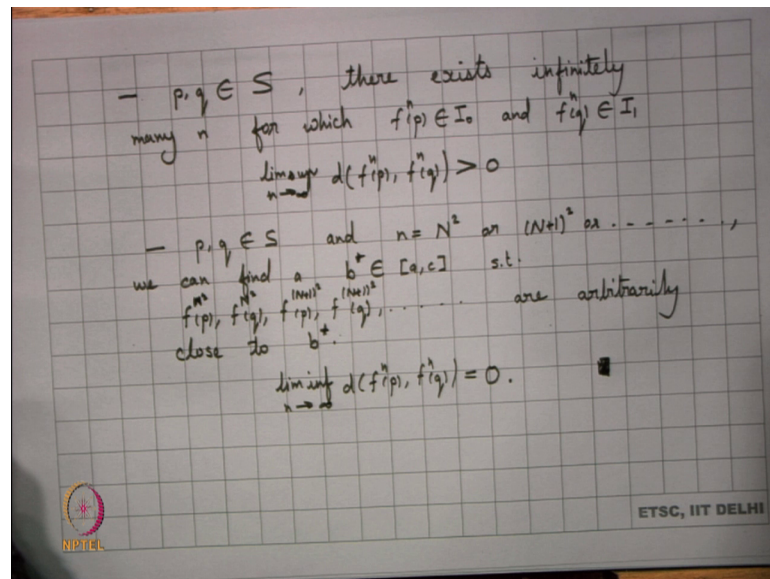 - p, q ∈ S, there exists infinitely
many n for which fⁿ(p) ∈ I₀ and fⁿ(q) ∈ I₁
limsup d(fⁿ(p), fⁿ(q)) > 0
n→∞
- p, q ∈ S and n = N² or (N+1)² or .......,
we can find a b* ∈ [a,c] s.t.
f^{N²}(p), f^{N²}(q), f^{(N+1)²}(p), f^{(N+1)²}(q), ...... are arbitrarily
close to b*.
liminf d(fⁿ(p), fⁿ(q)) = 0.
n→∞
NPTEL
ETSC, IIT DELHI